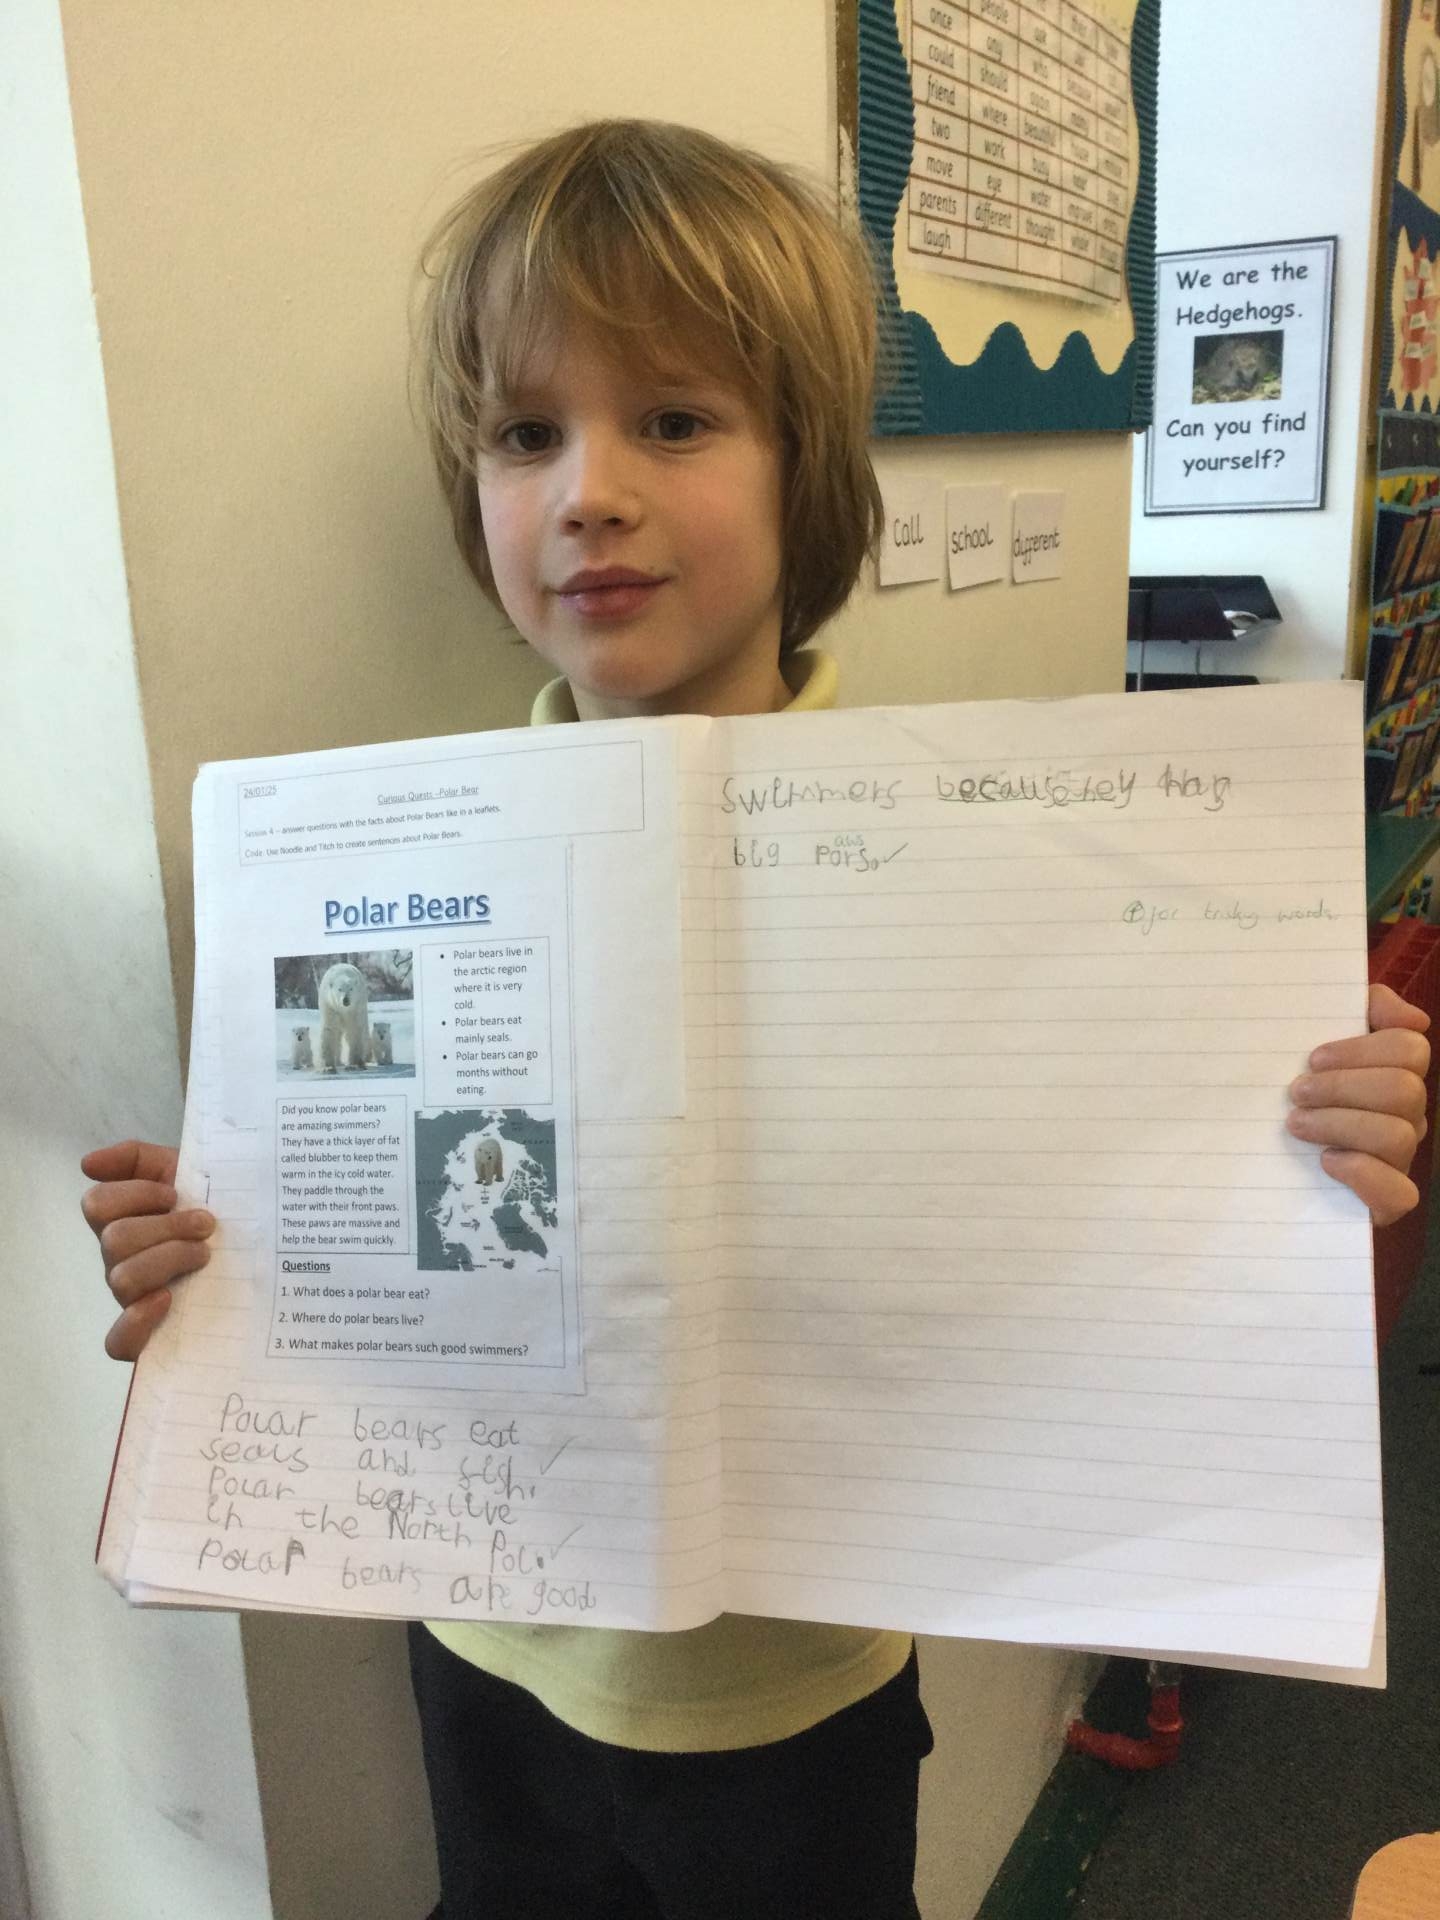 once people
could any ask
friend should who because
two where again many
move work beautiful house
parents eye busy
laugh different water improve
thought
We are the
Hedgehogs.
Can you find
yourself?
call
school
different
24/01/25
Curious Quests -Polar Bear
Session 4 – answer questions with the facts about Polar Bears like in a leaflets.
Code: Use Noodle and Titch to create sentences about Polar Bears.
Polar Bears
• Polar bears live in
the arctic region
where it is very
cold.
• Polar bears eat
mainly seals.
• Polar bears can go
months without
eating.
Did you know polar bears
are amazing swimmers?
They have a thick layer of fat
called blubber to keep them
warm in the icy cold water.
They paddle through the
water with their front paws.
These paws are massive and
help the bear swim quickly.
Questions
1. What does a polar bear eat?
2. Where do polar bears live?
3. What makes polar bears such good swimmers?
Polar bears eat
seals and fish.
Polar bears live
in the North Pol.
Polar bears are good
swimmers because they hav
big pors.
aws
for tricky words.